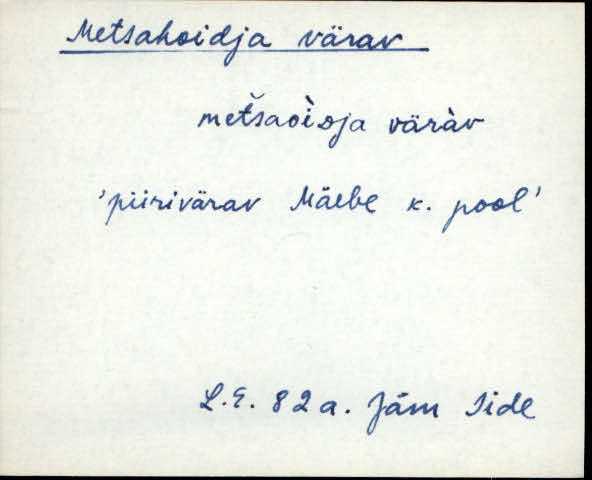 Metsahoidja värav
metšaòiᴅja väràv
'piirivärav Mäebe k. pool'
L.E. 82 a. Jäm Side